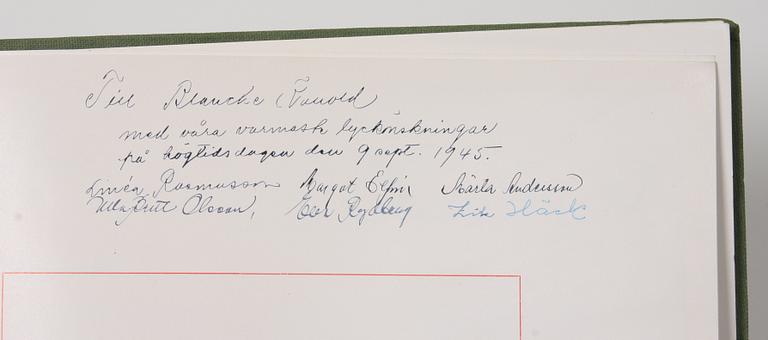 Till Blanche
med våra varmaste lyckönskningar
på högtidsdagen den 9 sept. 1945.
Linnéa Rasmusson Margot Märta Andersson
Ulla Britt Olsson, Rydberg Häck